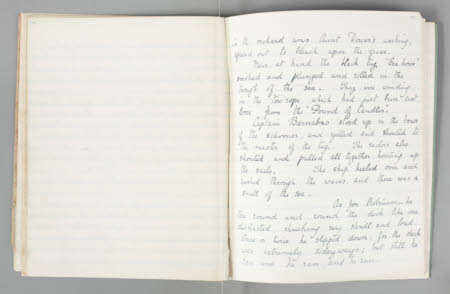 in the orchard was Aunt Dorcas's washing,
spread out to bleach upon the grass.
Near at hand the black tug "Sea-horse"
rocked and plunged and rolled in the
trough of the sea. They were winding
in the tow-rope which had just been cast
loose from the "Pound of Candles".
Captain Barnabas stood up in the bows
of the schooner, and yelled and shouted to
the master of the tug. The sailors also
shouted, and pulled all together, hoisting up
the sails. The ship heeled over and
rushed through the waves, and there was a
smell of the sea.
As for Robinson — he
ran round and round the deck like one
distracted, shrieking very shrill and loud.
Once or twice he slipped down; for the deck
was extremely sideways; but still he
ran and he ran and he ran.